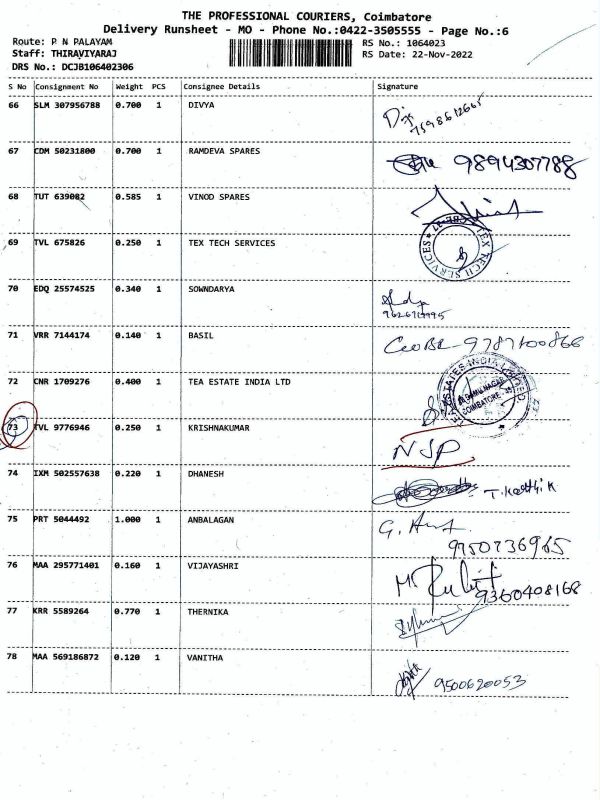 THE PROFESSIONAL COURIERS, Coimbatore
Delivery Runsheet - MO - Phone No.:0422-3505555 - Page No.:6
Route: P N PALAYAM
Staff: THIRAVIYARAJ
DRS No.: DCJB106402306
RS No.: 1064023
RS Date: 22-Nov-2022
S No Consignment No Weight PCS Consignee Details Signature
66 SLM 307956788 0.700 1 DIVYA
7598612665
67 CDM 50231800 0.700 1 RAMDEVA SPARES 9894307788
68 TUT 639082 0.585 1 VINOD SPARES
69 TVL 675826 0.250 1 TEX TECH SERVICES
TEX TECH SERVICES
70 EDQ 25574525 0.340 1 SOWNDARYA
71 VRR 7144174 0.140 1 BASIL
72 CNR 1709276 0.400 1 TEA ESTATE INDIA LTD
COIMBATORE
73 TVL 9776946 0.250 1 KRISHNAKUMAR
NSP
74 IXM 502557638 0.220 1 DHANESH
T. Karthik
75 PRT 5044492 1.000 1 ANBALAGAN
9750736965
76 MAA 295771401 0.160 1 VIJAYASHRI
9360408168
77 KRR 5589264 0.770 1 THERNIKA
78 MAA 569186872 0.120 1 VANITHA
9500620053